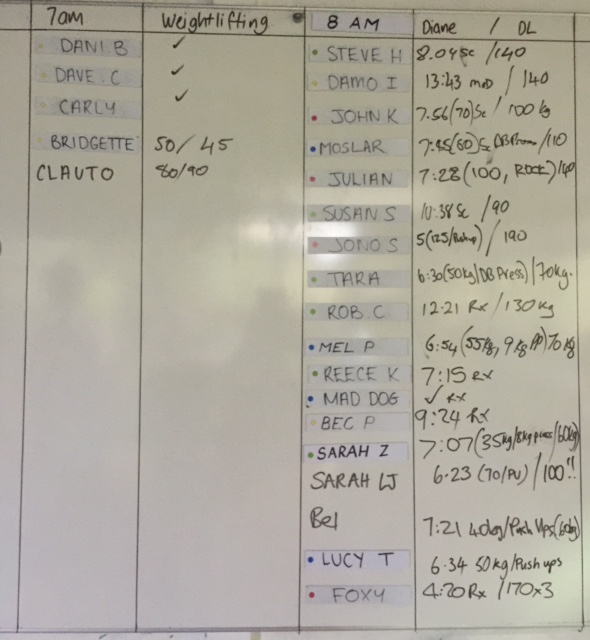 7am Weightlifting
DANI.B ✓
DAVE.C ✓
CARLY ✓
BRIDGETTE 50/45
CLAUTO 80/90
8 AM Diane / DL
STEVE H 8.04 Sc /140
DAMO I 13:43 mod / 140
JOHN K 7.56(70)Sc / 100 kg
MOSLAR 7:45(60)Sc /110
JULIAN 7:28 (100, ROCK)/140
SUSAN S 10:38 Sc /90
JONO S 5(125/) / 190
TARA 6:30(50kg/DB Press)/70kg.
ROB.C 12:21 Rx /130kg
MEL P 6:54 (55kg, 9kg PP) 70 kg
REECE K 7:15 Rx
MAD DOG ✓ Rx
BEC P 9:24 Rx
SARAH Z 7:07(35kg/8kg press/60kg)
SARAH LJ 6.23 (70/PU) /100!!
Bel 7:21 40kg/Push Ups(60kg)
LUCY T 6.34 50kg/Push ups
FOXY 4:20 Rx /170x3